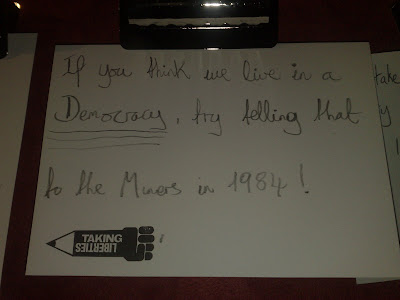 If you think we live in a
Democracy, try telling that
to the Miners in 1984!
TAKING
LIBERTIES
take